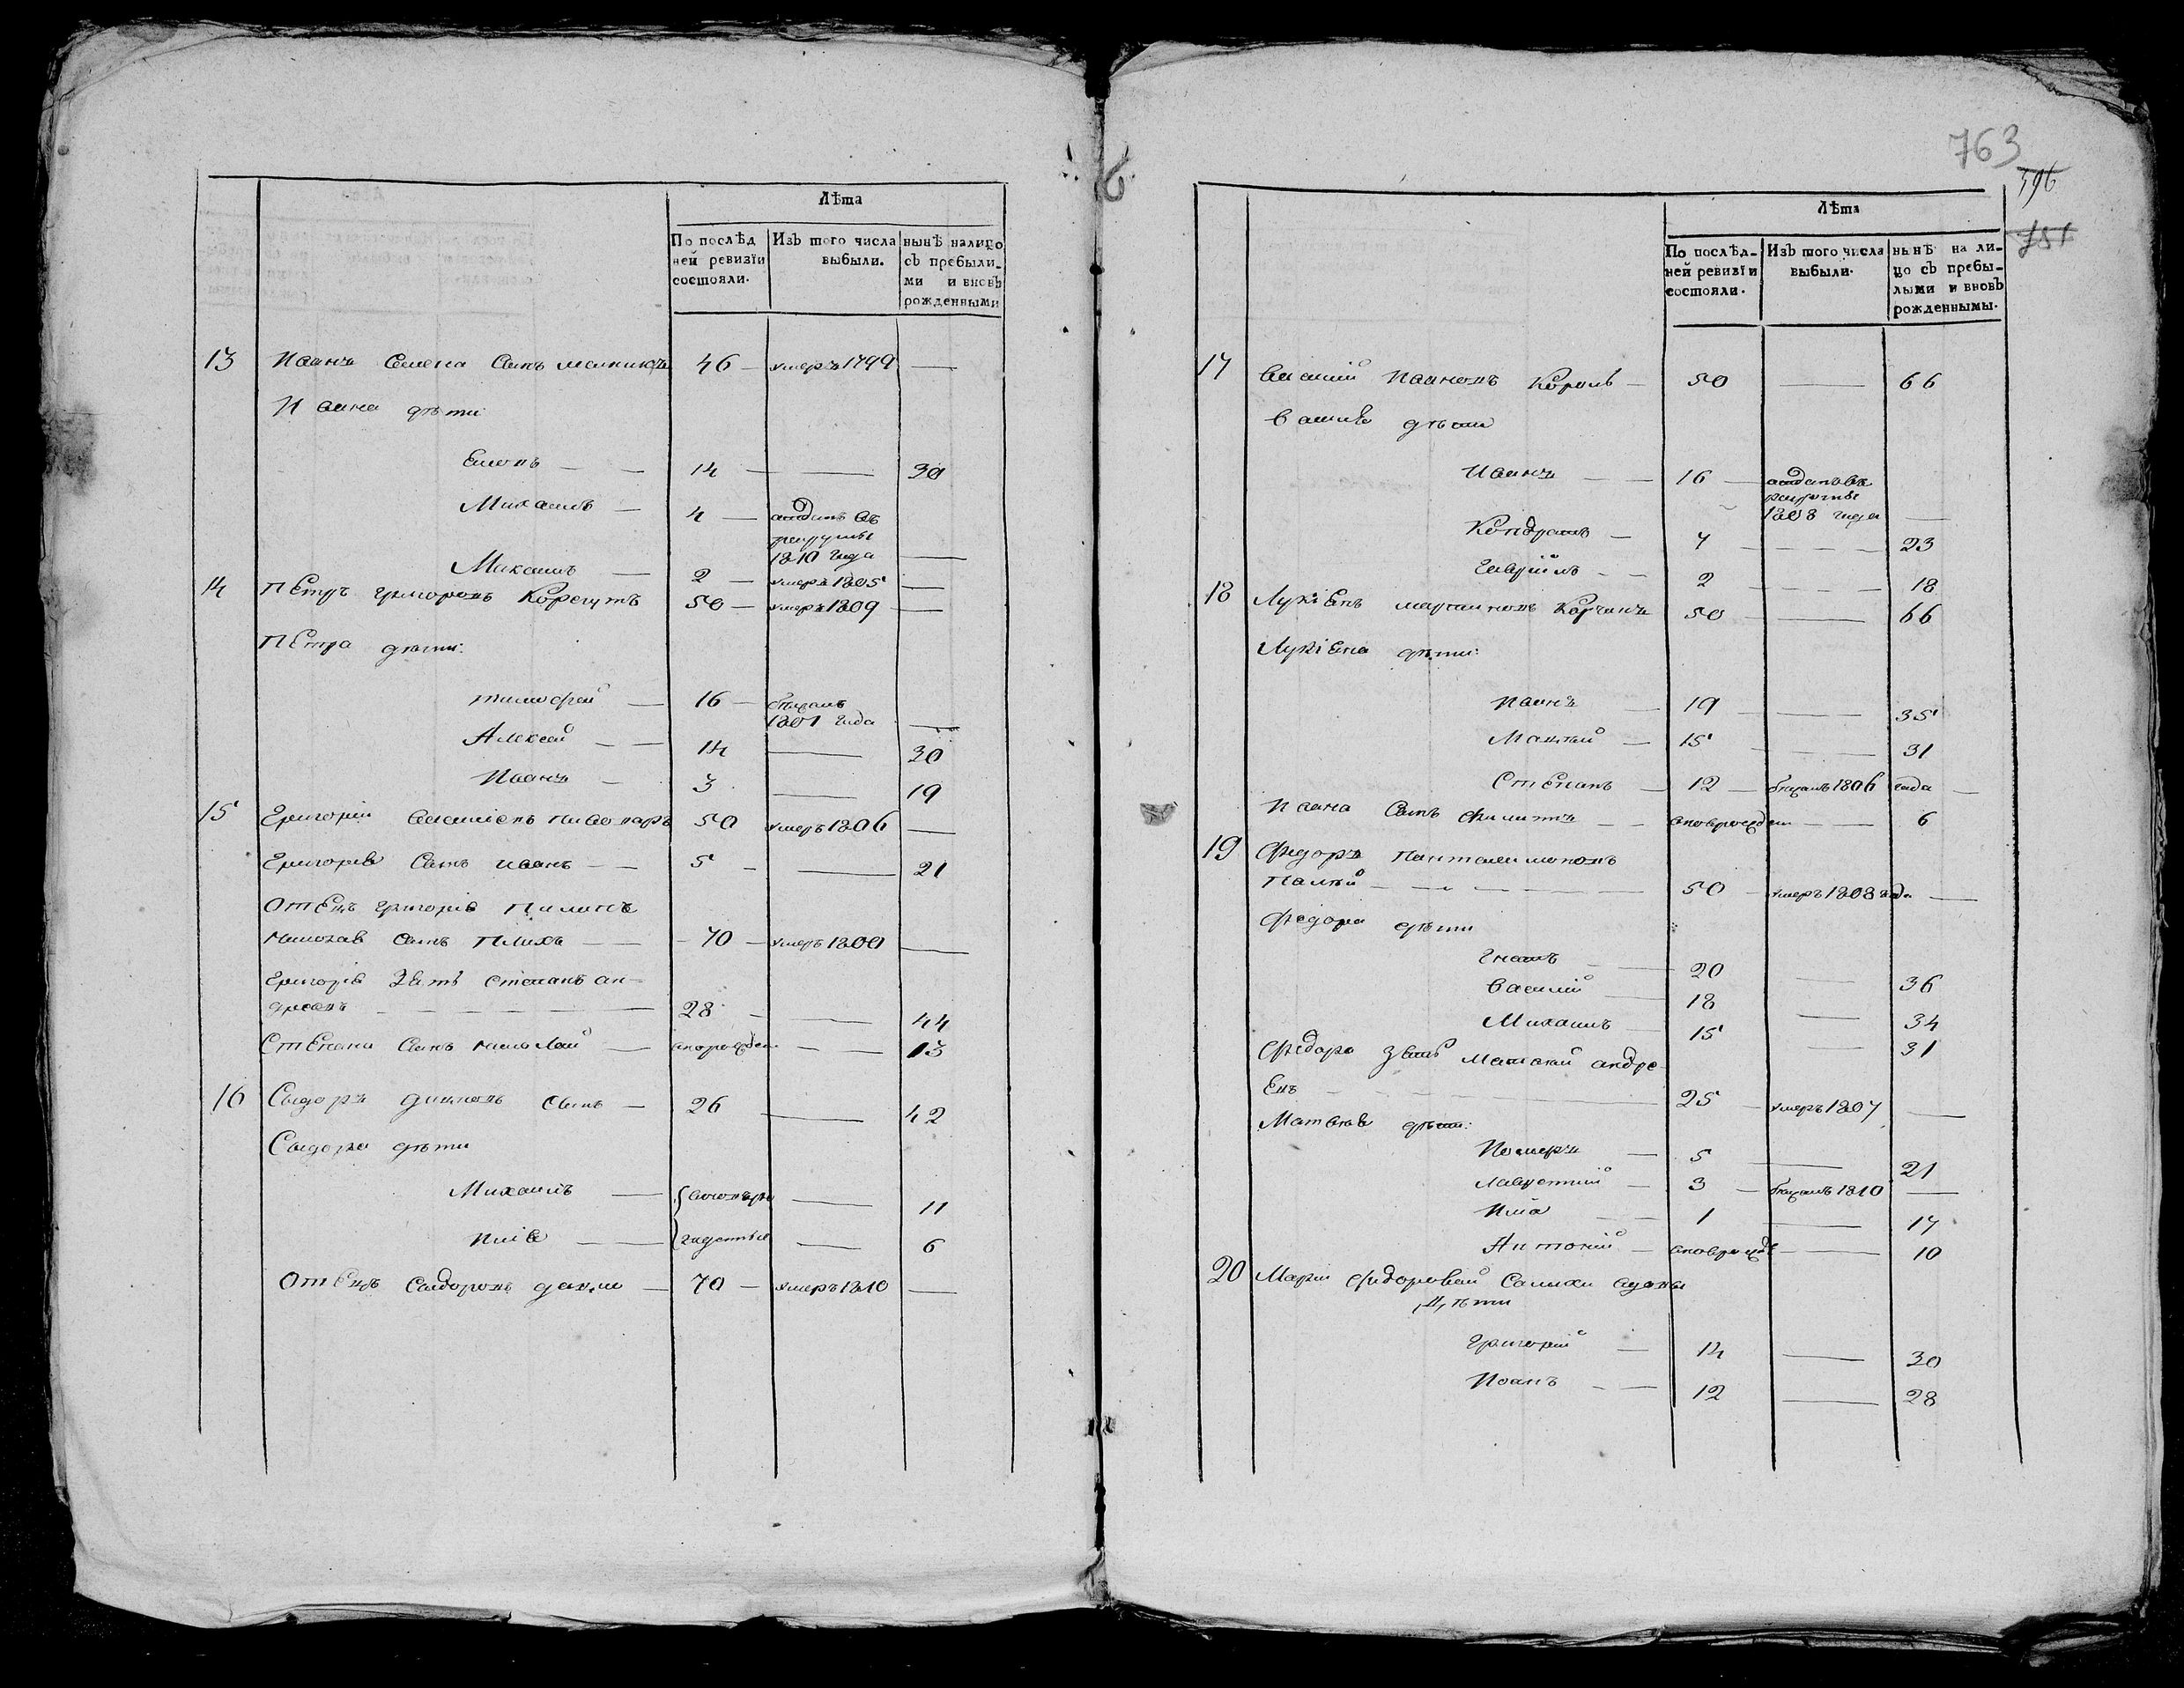 Лѣта
По послѣд
ней ревизіи
состояли.
Изъ того числа
выбыли.
нынѣ налицо
съ прибыли_
ми и вновь
рожденными
13 Иванъ Семена Сынъ 46 — умеръ 1799 —
Ивана дѣти:
14 — — 30
Михаилъ — 4 — отданъ въ
рекруты
1810 года —
Максимъ — 2 — умеръ 1805 —
14 Петръ Григоровъ 50 — умеръ 1809 —
Петра дѣти:
Тимофей — 16 — бѣжалъ
1801 года —
Алексей — — 14 — 30
Иванъ — 3 — 19
15 Григорій 50 умеръ 1806 —
Григорія Сынъ Иванъ — — 5 — — 21
Отецъ Григорія
Сынъ — — 70 — умеръ 1800 —
Григорія Зять Степанъ ан-
дреевъ — 28 — — 44
Степана Сынъ Николай — вновьрожден — — 13
16 Сидоръ Сынъ — 26 — 42
Сидора дѣти
Михаилъ — — 11
— — — 6
Отецъ Сидоровъ — 70 — умеръ 1810 —
763
596
751
Лѣта
По послѣд-
ней ревизіи
состояли.
Изъ того числа
выбыли.
нынѣ на ли-
цо съ прибы-
лыми и вновь
рожденными.
17 Василій Ивановъ Король — 50 — 66
Василія дѣти
Иванъ — — 16 — отданъ въ
рекруты
1808 года —
Кондратъ — 7 — — — 23
Гаврiилъ — — 2 — — — 18
18 Лукіенъ Мартиновъ 50 — — 66
Лукіена дѣти:
Иванъ — 19 — — 35
Матвѣй — 15 — — 31
Степанъ — 12 — бѣжалъ 1806 года —
Ивана Сынъ Филиппъ — — вноврожден — — 6
19 Федоръ Пантелимоновъ
Палѣй — — — — 50 — умеръ 1808 года —
Федора дѣти
Гнатъ — 20 — 36
Василій — 18 — 34
Михаилъ — 15 — 31
Федора зять Матвѣй андре-
евъ — 25 — умеръ 1807 —
Матвѣя дѣти:
— 5 — 21
Лаврентій — 3 — бѣжалъ 1810 —
Илія — — 1 — 17
Антоній — вноврожд — — 10
20 Маріи Федоровой вдовы
дѣти
Григорій — 14 — 30
Иванъ — — 12 — 28